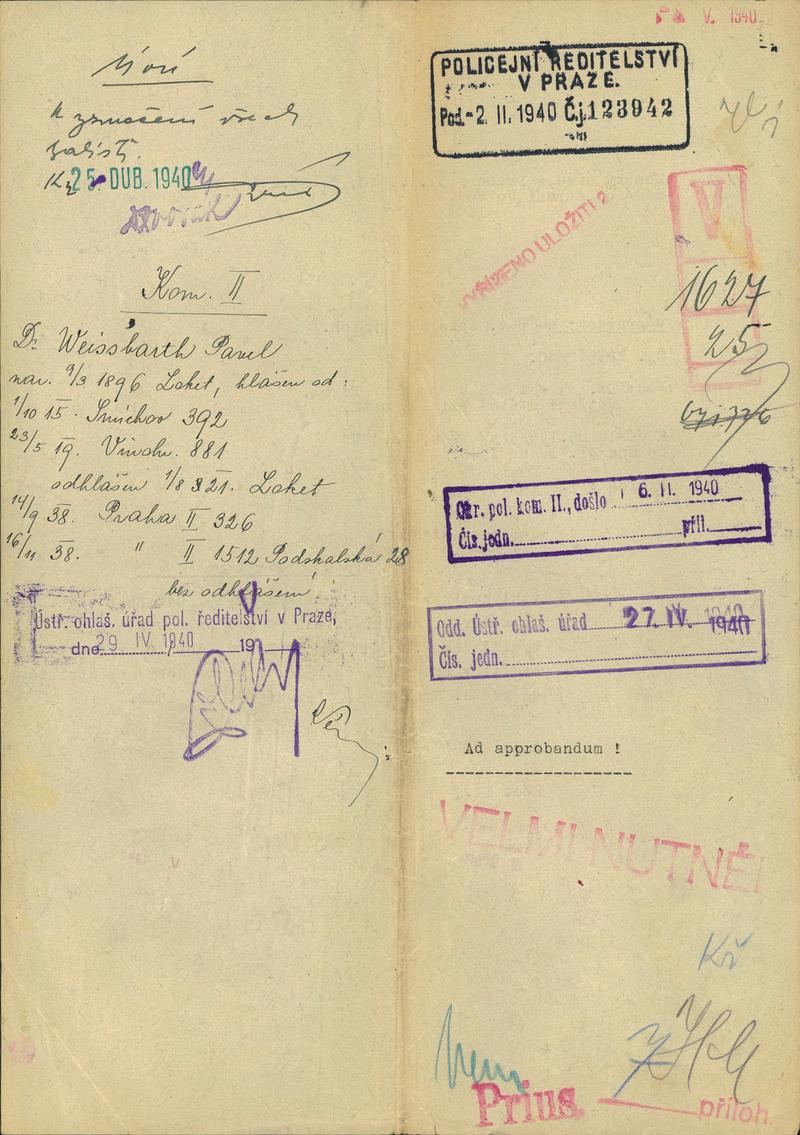 K
všech
25. DUB. 1940
Kom. II
Dr. Weissbarth Pavel
nar. 9/3 1896 Loket, hlášen od:
1/10 15. Smíchov 392
23/5 19. Vinohr. 881
odhlášen 1/8 21. Loket
14/9 38. Praha II 326
16/11 38. " II 1512 Podskalská 28
bez odhlášení!
Ústř. ohlaš. úřad pol. ředitelství v Praze,
dne 29 IV. 1940 19
V. 1940
POLICEJNÍ ŘEDITELSTVÍ
V PRAZE.
Pod. -2. II. 1940 Č.j. 123942
VYŘÍZENO ULOŽITI
V
1627
25
Okr. pol. kom. II., došlo 6. II. 1940
Čís. jedn. příl.
Odd. Ústř. ohlaš. úřad 27. IV. 1940
Čís. jedn.
Ad approbandum !
VELMI NUTNÉ!
Kř
Prius. příloh.